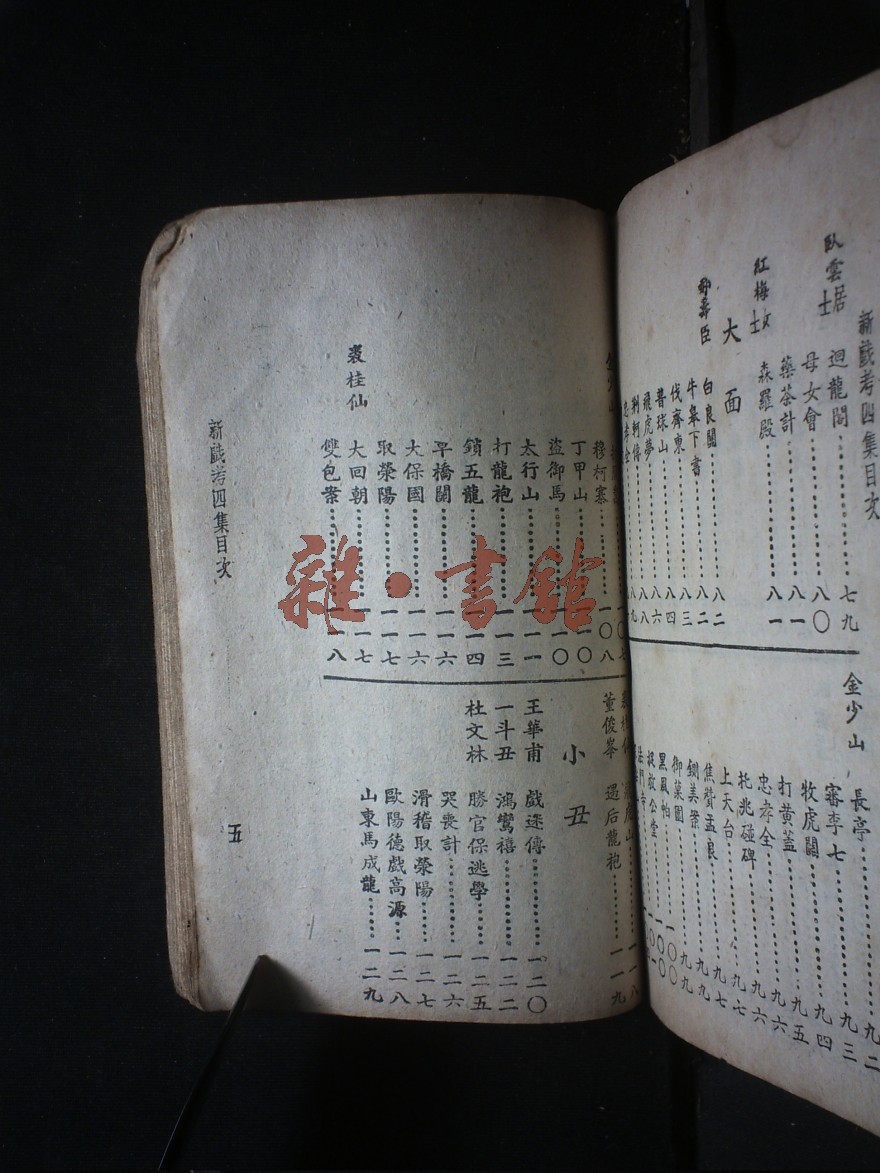 新戲考四集目次
臥雲居士 迴龍閣 七九
母女會 八〇
藥茶計 八一
紅梅女士 森羅殿 八一
大面
郝壽臣 白良關 八二
牛皋下書 八二
伐齊東 八三
普球山 八四
飛虎夢 八六
荆軻傳 八八
金少山 長亭 九二
審李七 九三
牧虎關 九四
打黃蓋 九五
忠孝全 九六
托兆碰碑 九六
上天台 九七
焦贊孟良 九七
鍘美案 九九
御菓園 九九
黑風帕 一〇〇
穆柯寨 一〇八
丁甲山 一〇〇
盜御馬 一一〇
太行山 一一一
打龍袍 一一三
鎖五龍 一一四
草橋關 一一六
大保國 一一六
取滎陽 一一七
裘桂仙 大回朝 一一七
雙包案 一一八
董俊峯 遇后龍袍 一一九
小丑
王華甫 戲迷傳 一二〇
一斗丑 鴻鸞禧 一二二
杜文林 勝官保逃學 一二五
哭喪計 一二六
滑稽取滎陽 一二七
歐陽德戲高源 一二八
山東馬成龍 一二九
新戲考四集目次
五
雜·書館